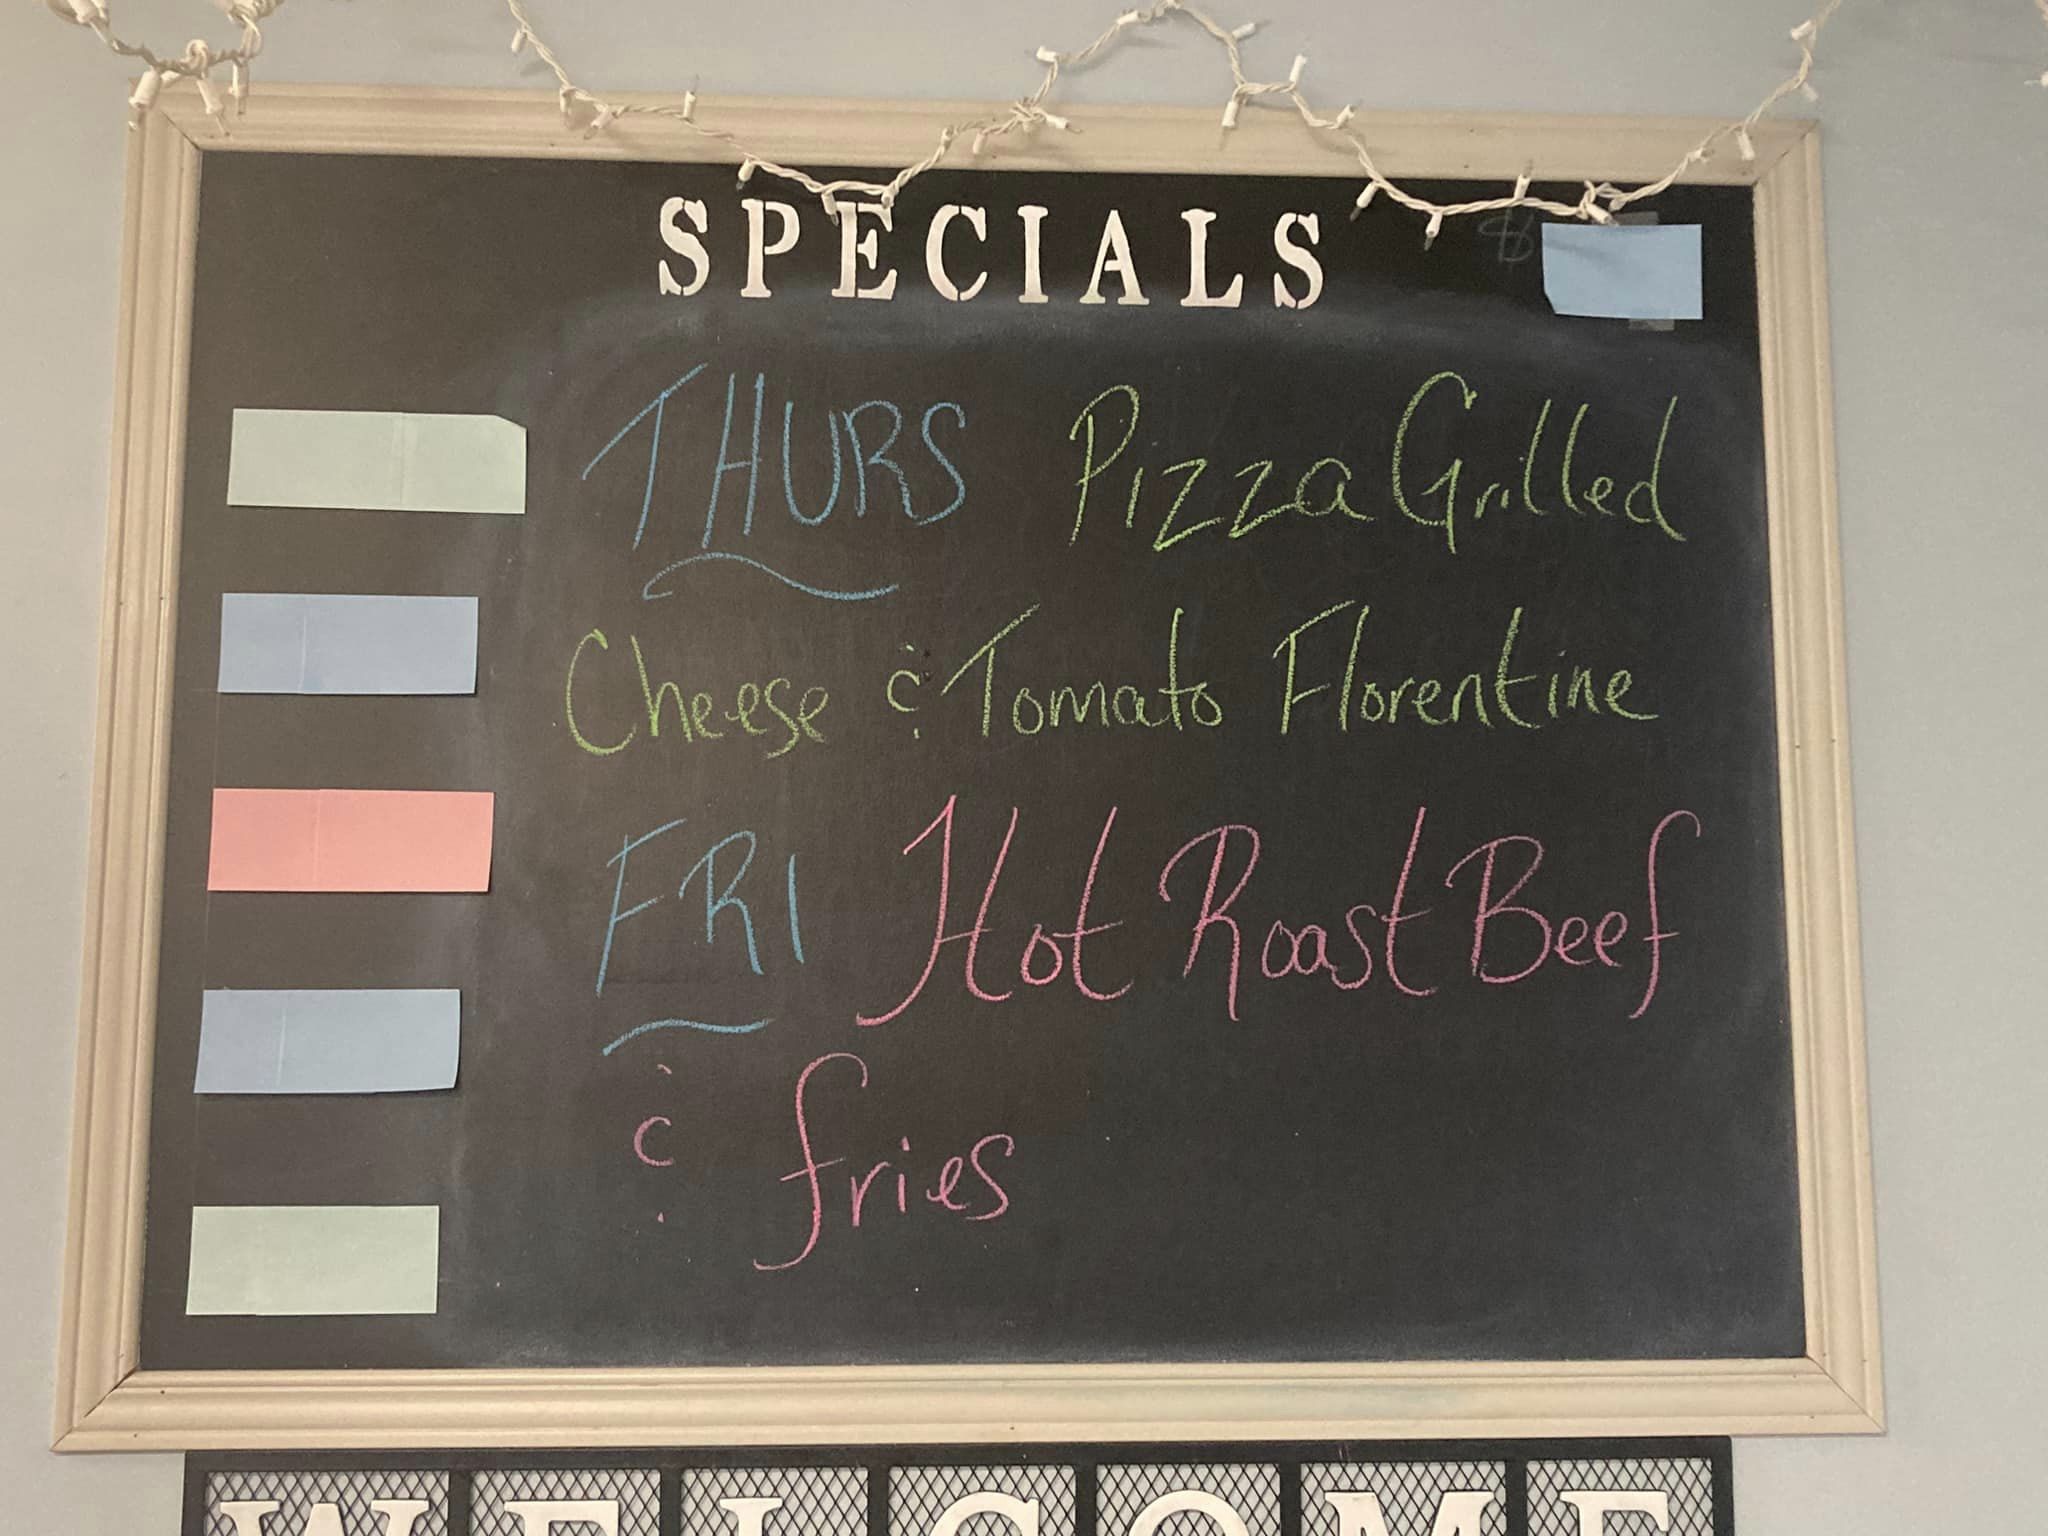 SPECIALS
$
THURS Pizza Grilled
Cheese & Tomato Florentine
FRI Hot Roast Beef
& fries
WELCOME